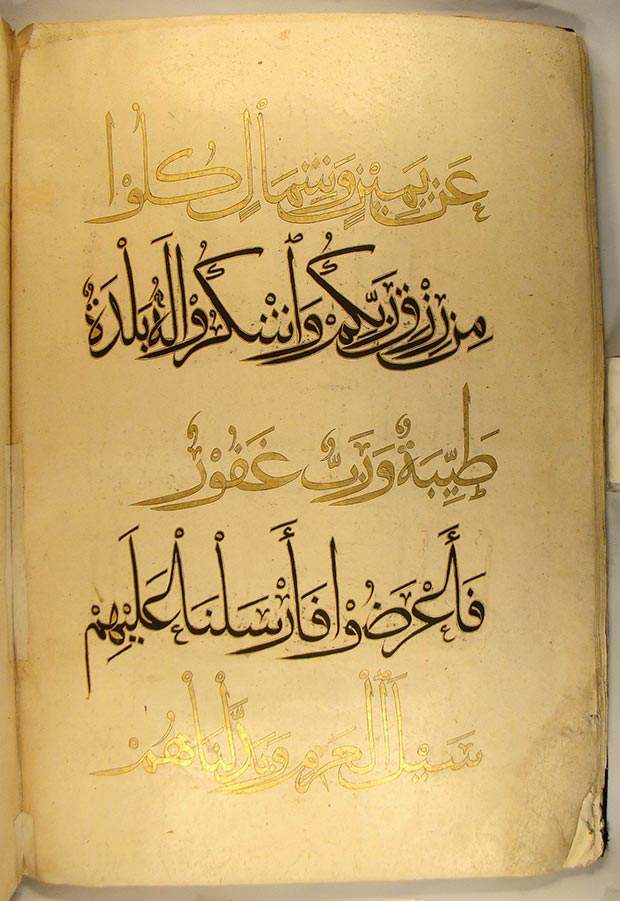 عَن يَمِينٍ وَشِمَالٍ كُلُوْا
مِن رِزْقِ رَبِّكُمْ وَاشْكُرُوْا لَهُ بَلْدَةٌ
طَيِّبَةٌ وَرَبٌّ غَفُوْرٌ
فَأَعْرَضُوْا فَأَرْسَلْنَا عَلَيْهِمْ
سَيْلَ الْعَرِمِ وَبَدَّلْنَاهُمْ